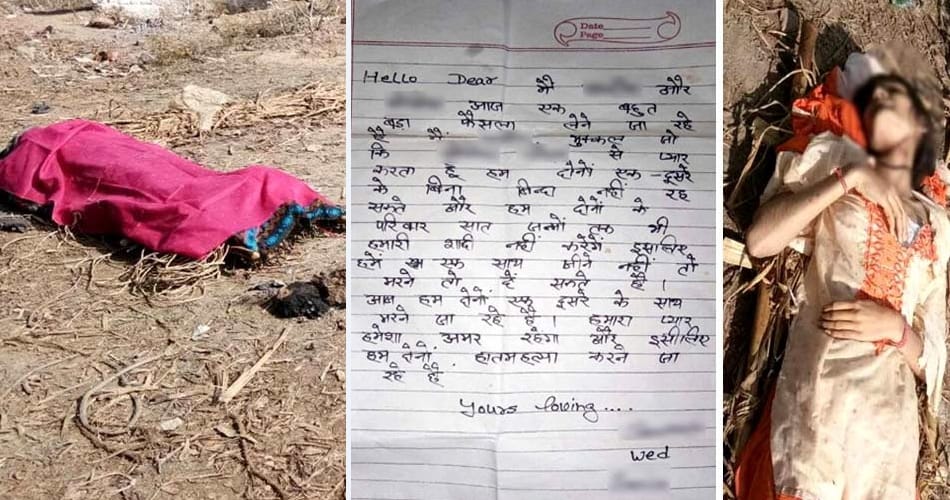 Date
Page
Hello Dear मै और
आज एक बहुत
बड़ा फैसला लेने जा रहे
है मै जो
कि से प्यार
करता हूँ हम दोनों एक-दूसरे
के बिना जिन्दा नहीं रह
सकते और हम दोनों के
परिवार सात जन्मों तक भी
हमारी शादी नहीं करेंगे इसलिए
हमें एक साथ जीने नहीं तो
मरने तो दें सकते है।
आज हम दोनों एक दूसरे के साथ
मरने जा रहे है। हमारा प्यार
हमेशा अमर रहेगा और इसीलिए
हम दोनों हातमहत्या करने जा
रहे हैं
Yours loving....
Wed